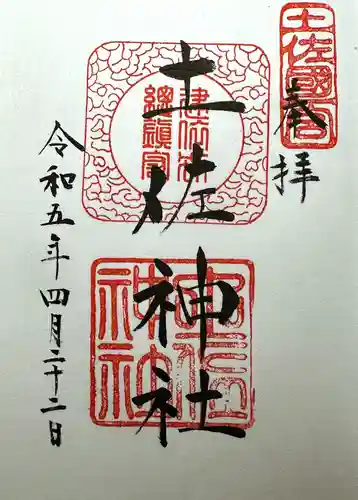 土佐國一宮
奉拝
建依別
總鎮守
土佐神社
土佐神社
令和五年四月二十二日